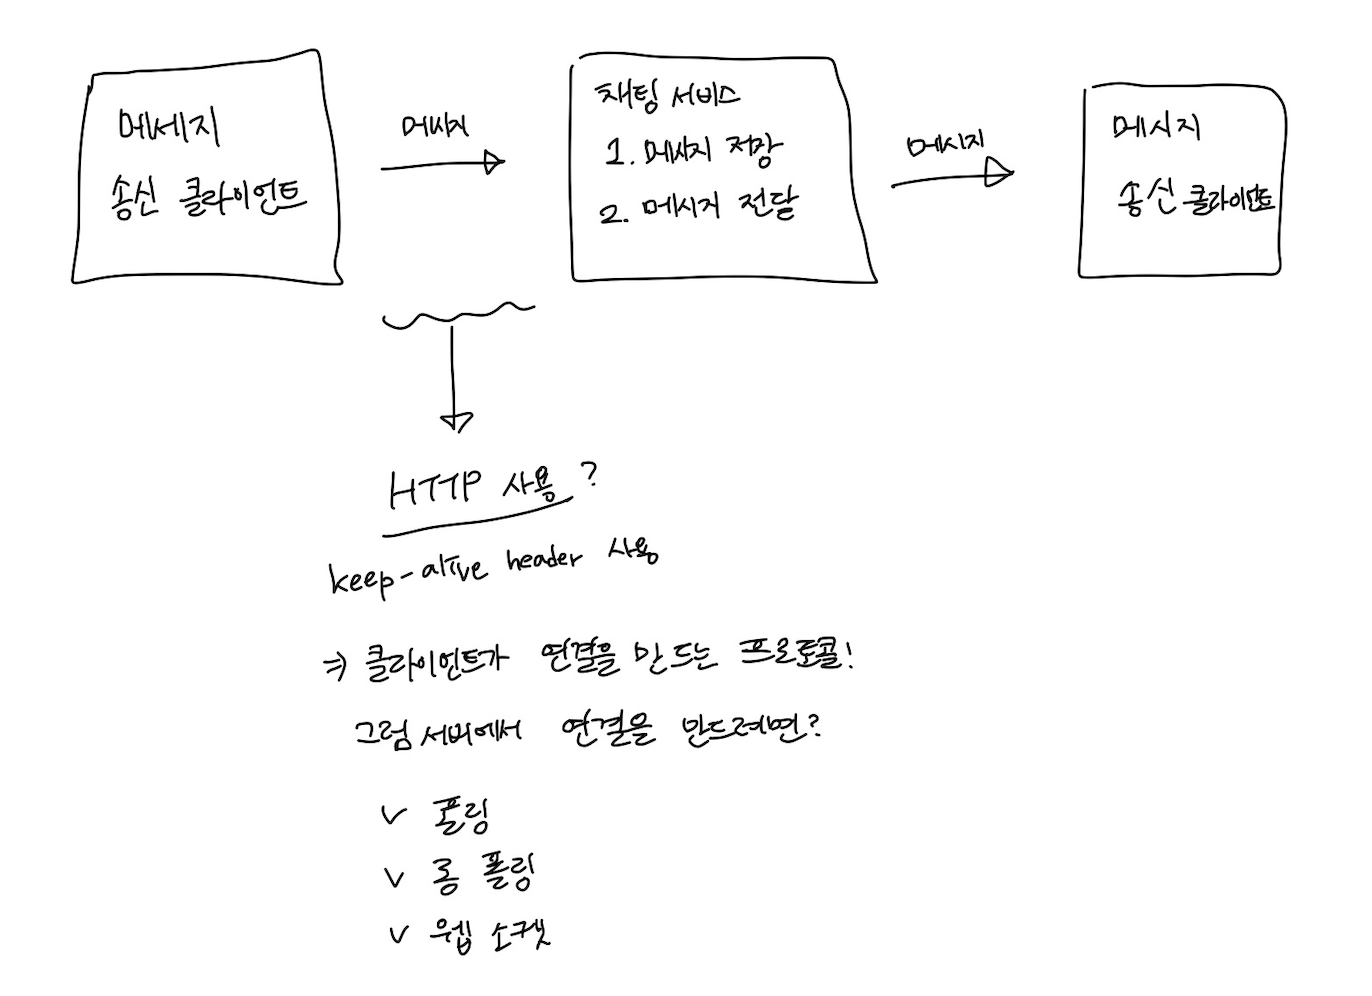 메세지
송신 클라이언트
메시지
채팅 서비스
1. 메시지 저장
2. 메시지 전달
메시지
메시지
송신 클라이언트
HTTP 사용?
keep-alive header 사용
⇒ 클라이언트가 연결을 만드는 프로토콜!
그럼 서버에서 연결을 만드려면?
✓ 폴링
✓ 롱 폴링
✓ 웹 소켓